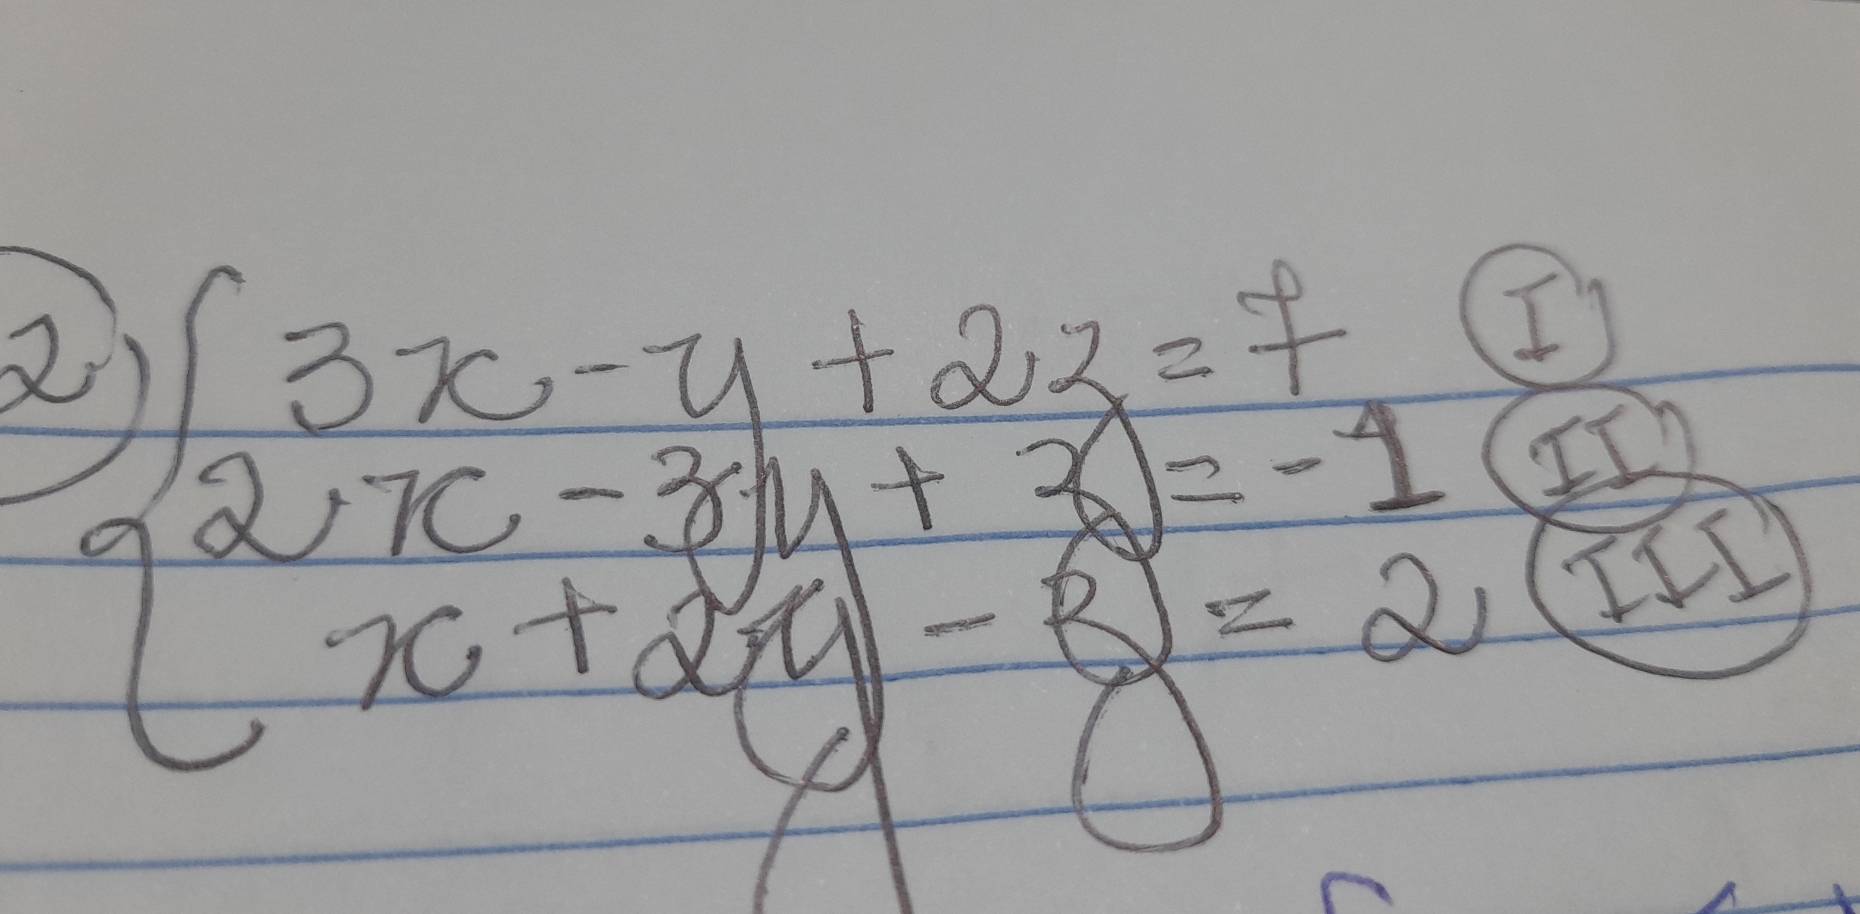 2) { 3x - y + 2z = 7 I)
2x - 3y + z = -1 II)
x + 2y - z = 2 III)